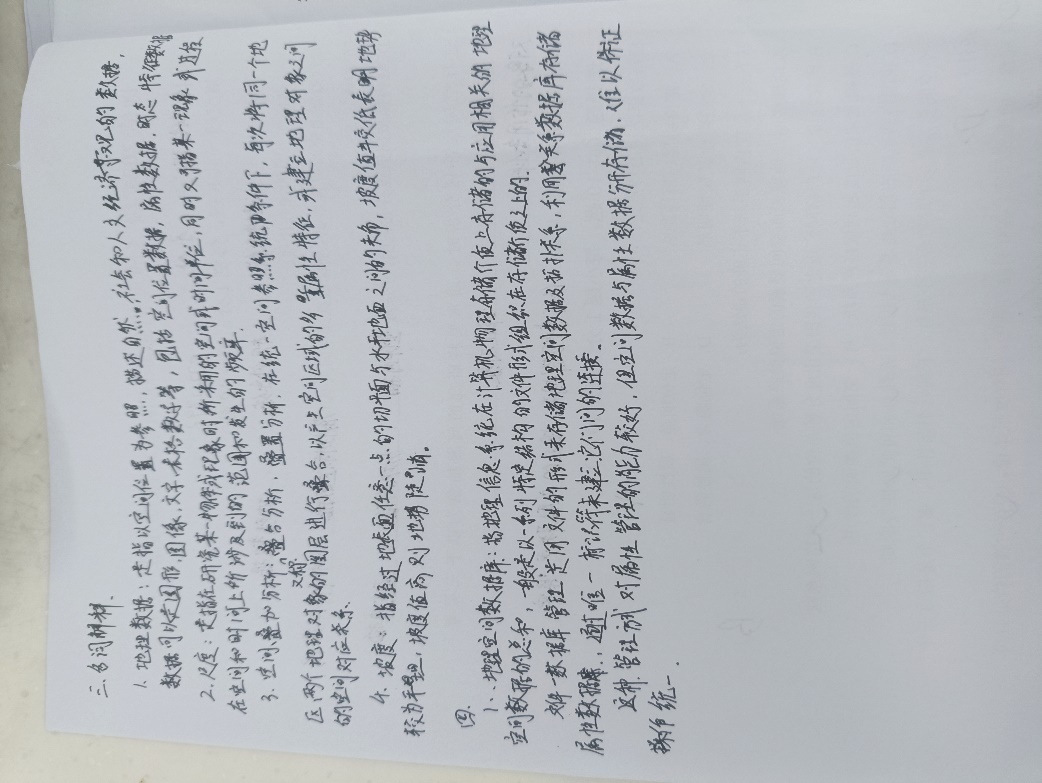 三.名词解释.
1.地理数据:是指以空间位置为参照,描述自然,社会和人文经济景观的数据,
数据可以是图形,图像,文字,表格数字等,包括空间位置数据,属性数据,时态特征数据
2.尺度:是指在研究某一物体或现象时所采用的空间或时间单位,同时又可指某一现象或过程
在空间和时间上所涉及到的范围和发生的频率.
3.空间叠加分析:又称叠合分析,叠置分析,在统一空间参照系统条件下,每次将同一个地
区两个地理对象的图层进行叠合,以产生空间区域的多重属性特征,或建立地理对象之间
的空间对应关系.
4.坡度:指经过地表面任意一点的切平面与水平地面之间的夹角,坡度值较低表明地势
较为平坦,坡度值高则地势陡峭。
四.
1、地理空间数据库:指地理信息系统在计算机物理存储介质上存储的与应用相关的地理
空间数据的总和,一般是以一系列特定结构的文件形式组织在存储介质之上的.
文件-数据库管理:是用文件的形式来存储地理空间数据及拓扑关系,利用关系数据库存储
属性数据,通过唯一标识符来建立它们间的连接。
这种管理方式对属性管理的能力较好,但空间数据与属性数据分开存储,难以保证
操作统一.